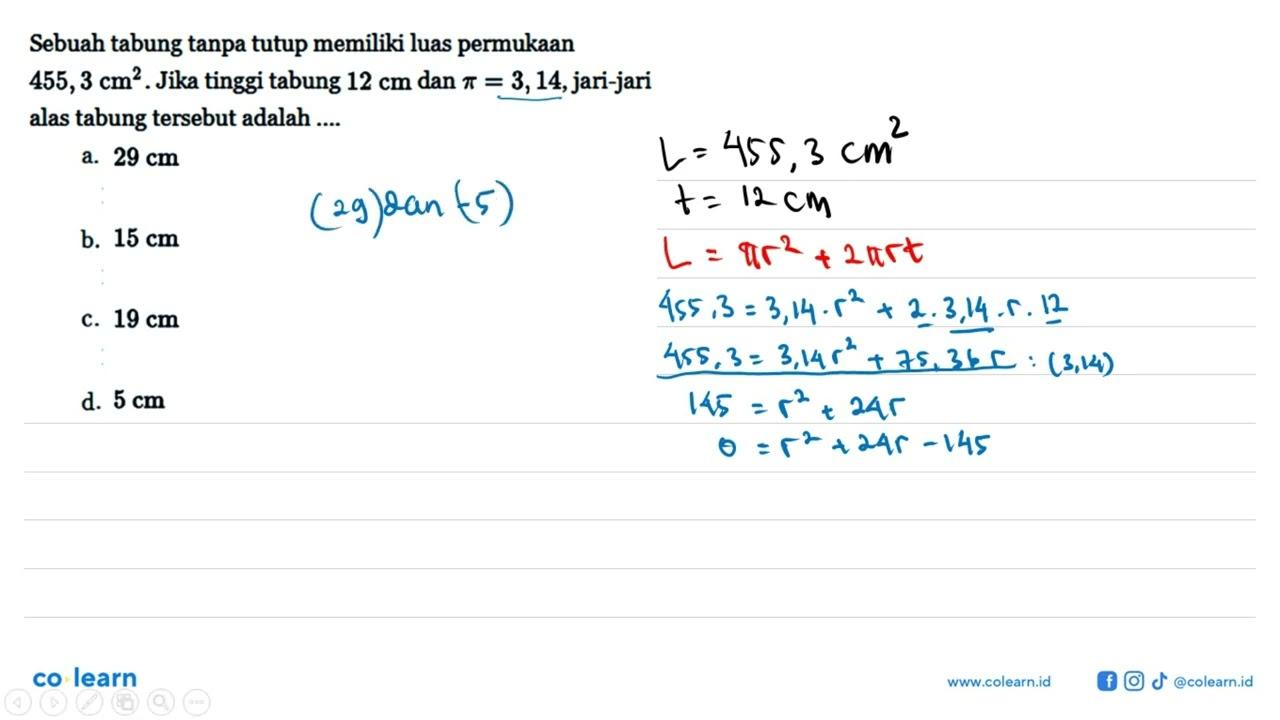 Sebuah tabung tanpa tutup memiliki luas permukaan
455,3 cm². Jika tinggi tabung 12 cm dan π = 3,14, jari-jari
alas tabung tersebut adalah ....
a. 29 cm
b. 15 cm
c. 19 cm
d. 5 cm
(29) dan (-5)
L = 455,3 cm²
t = 12 cm
L = πr² + 2πrt
455,3 = 3,14 . r² + 2 . 3,14 . r . 12
455,3 = 3,14r² + 75,36r : (3,14)
145 = r² + 24r
0 = r² + 24r - 145
co·learn
www.colearn.id
@colearn.id